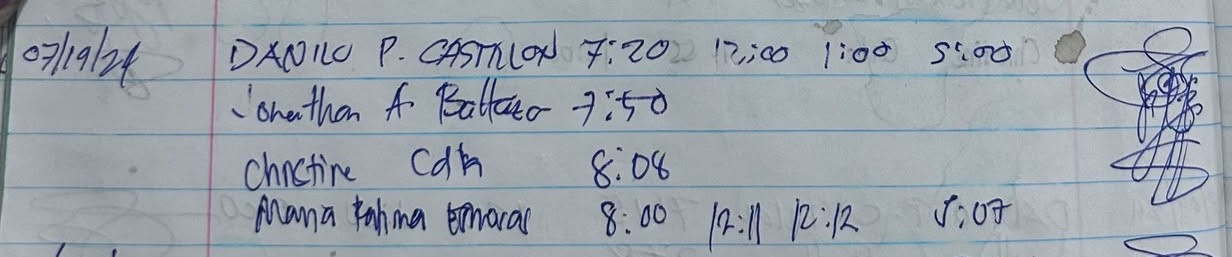 07/19/24 DANILO P. CASTILLON 7:20 12:00 1:00 5:00
Jonathan A Baltazar 7:50
Christine 8:08
Maria Fatima 8:00 12:11 12:12 5:07